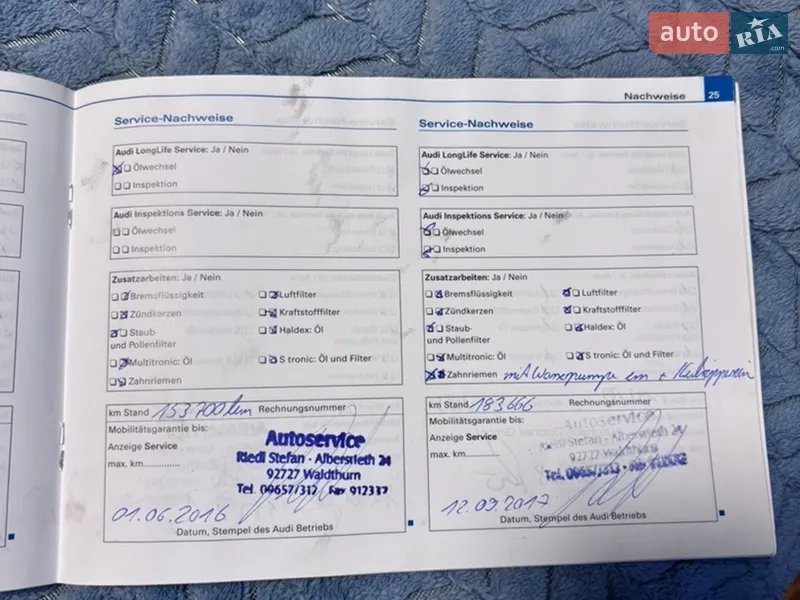 auto RIA .com
Nachweise 25
Service-Nachweise
Audi LongLife Service: Ja / Nein
Ölwechsel
Inspektion
Audi Inspektions Service: Ja / Nein
Ölwechsel
Inspektion
Zusatzarbeiten: Ja / Nein
Bremsflüssigkeit Luftfilter
Zündkerzen Kraftstofffilter
Staub- Haldex: Öl
und Pollenfilter
Multitronic: Öl S tronic: Öl und Filter
Zahnriemen
km Stand 153700 km Rechnungsnummer
Mobilitätsgarantie bis:
Anzeige Service
max. km..............
Autoservice
Riedl Stefan - Albersrieth 24
92727 Waldthurn
Tel. 09657/312 Fax 912337
01.06.2016
Datum, Stempel des Audi Betriebs
Service-Nachweise
Audi LongLife Service: Ja / Nein
Ölwechsel
Inspektion
Audi Inspektions Service: Ja / Nein
Ölwechsel
Inspektion
Zusatzarbeiten: Ja / Nein
Bremsflüssigkeit Luftfilter
Zündkerzen Kraftstofffilter
Staub- Haldex: Öl
und Pollenfilter
Multitronic: Öl S tronic: Öl und Filter
Zahnriemen mit
km Stand 183666 Rechnungsnummer
Mobilitätsgarantie bis:
Anzeige Service
max. km..............
Autoservice
Riedl Stefan - Albersrieth 24
92727 Waldthurn
Tel. 09657/312 - Fax
12.09.2017
Datum, Stempel des Audi Betriebs